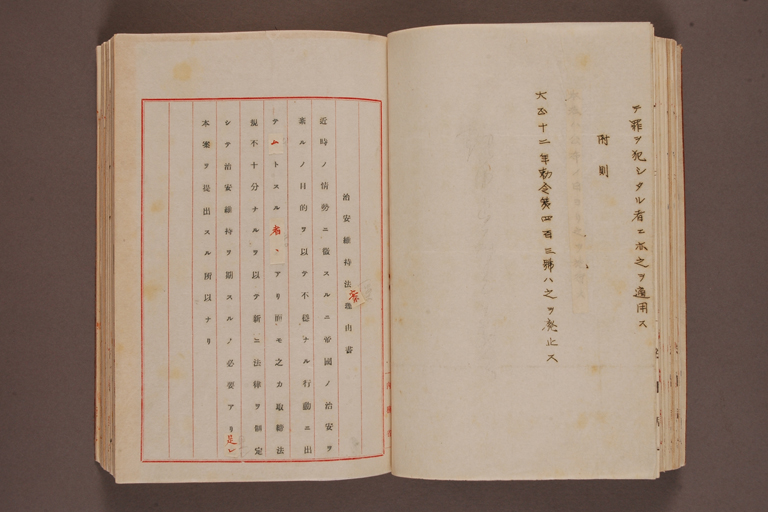 テ罪ヲ犯シタル者ニ亦之ヲ適用ス
附則
大正十二年勅令第四百三號ハ之ヲ廢止ス
治安維持法案理由書
近時ノ情勢ニ徴スルニ帝國ノ治安ヲ
紊ルノ目的ヲ以テ不穩ナル行動ニ出
テムトスル者アリ而モ之カ取締法
規不十分ナルヲ以テ新ニ法律ヲ制定
シテ治安維持ヲ期スルノ必要アリ是レ
本案ヲ提出スル所以ナリ